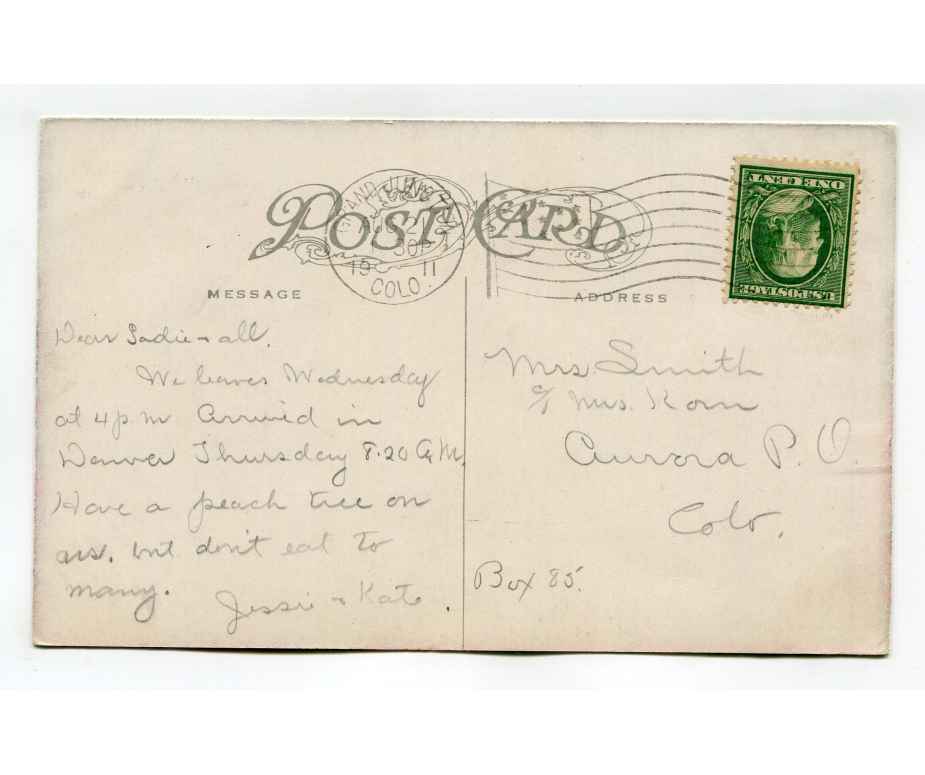 POST CARD
GRAND JUNCTION
30P
19 11
COLO.
ONE CENT
U.S. POSTAGE
MESSAGE
ADDRESS
Dear Sadie & all.
We leaves Wednesday
at 4 p.m Arrived in
Denver Thursday 8.20 A.M.
Have a peach tree on
us. but don't eat to
many.
Jessie & Kate.
Mrs Smith
c/o Mrs. Korn
Aurora P. O.
Colo.
Box 85.